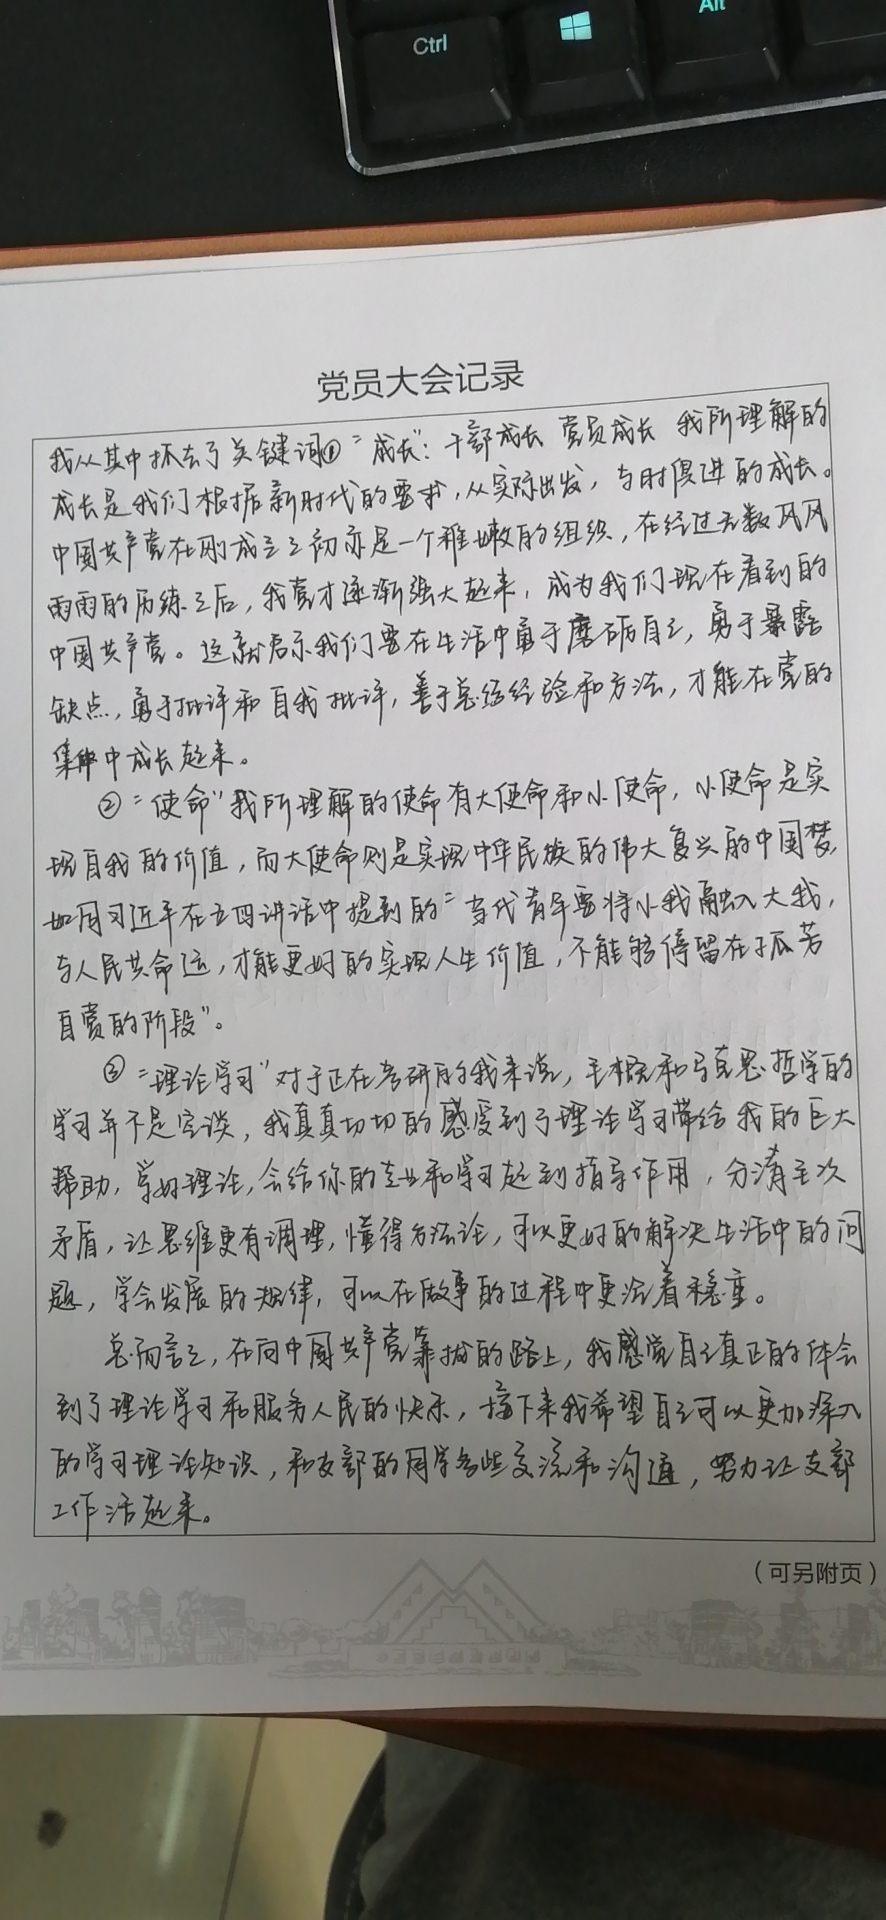 Ctrl
Alt
党员大会记录
我从其中抓去了关键词①“成长”：干部成长 党员成长 我所理解的
成长是我们根据新时代的要求，从实际出发，与时俱进的成长。
中国共产党在刚成立之初亦是一个稚嫩的组织，在经过无数风风
雨雨的历练之后，我党才逐渐强大起来，成为我们现在看到的
中国共产党。这就启示我们要在生活中勇于磨砺自己，勇于暴露
缺点，勇于批评和自我批评，善于总结经验和方法，才能在党的
集中中成长起来。
②“使命”我所理解的使命有大使命和小使命，小使命是实
现自我的价值，而大使命则是实现中华民族的伟大复兴的中国梦，
如同习近平在五四讲话中提到的“当代青年要将小我融入大我，
与人民共命运，才能更好的实现人生价值，不能够停留在孤芳
自赏的阶段”。
③“理论学习”对于正在考研的我来说，毛概和马克思哲学的
学习并不是空谈，我真真切切的感受到了理论学习带给我的巨大
帮助，学好理论，会给你的专业和学习起到指导作用，分清主次
矛盾，让思维更有调理，懂得方法论，可以更好的解决生活中的问
题，学会发展的规律，可以在做事的过程中更沉着稳重。
总而言之，在向中国共产党靠拢的路上，我感觉自己真正的体会
到了理论学习和服务人民的快乐，接下来我希望自己可以更加深入
的学习理论知识，和支部的同学多些交流和沟通，努力让支部
工作活起来。
（可另附页）